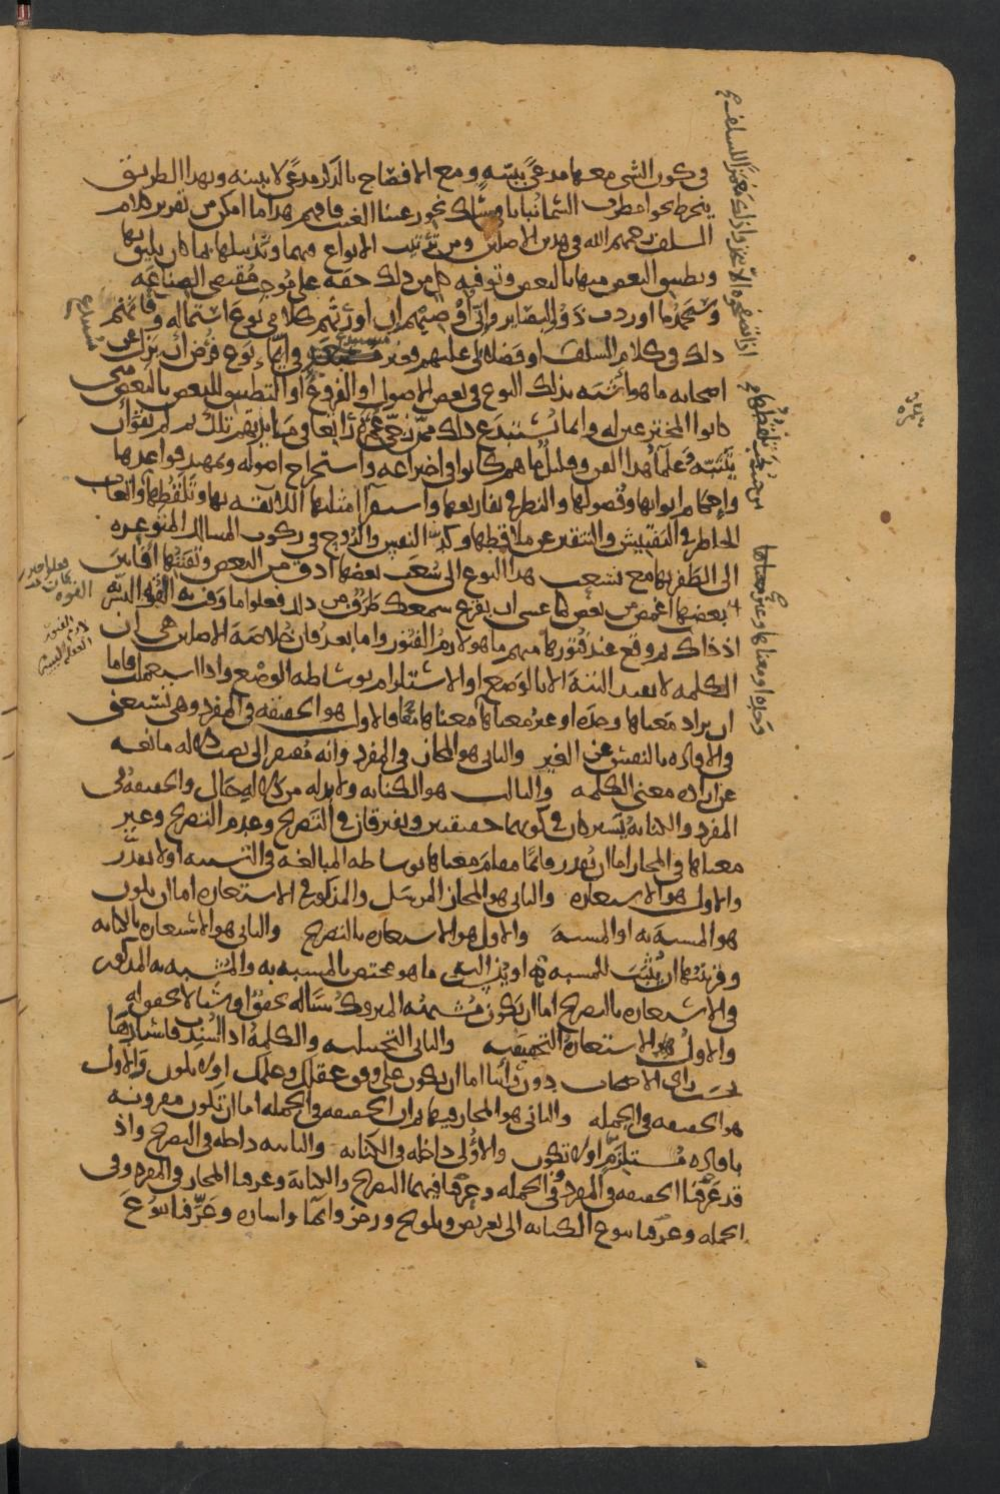 في كون الشي معها مدعى ببينه ومع الافصاح بالذكر مدعى لا ببينه وبهذا الطريق
ينخرط نحوا مطرت السما نباتا وسلك نحو رعينا الغيث فافهم هذا ما امكن من تقرير كلام
السلف رحمهم الله في هذين الاصلين ومن ترتيب الانواع فيهما وتذييلها بما كان يليق بها
وتطبيق البعض منها بالبعض وتوفيه كل من ذلك حقه على موجب مقتضى الصناعه
وسيحمد ما اوردت ذوو البصائر واني اوصيهم ان اورثهم كلامي نوع استماله وفاتهم
ذلك في كلام السلف اذا تصفحوه ان لا يتخذوا ذلك مغمزا للسلف او فضلا لي عليهم فغير مستبدع في ايما نوع فرض ان يزل عن
اصحابه ما هو اشبه بذلك النوع في بعض الاصول او الفروع او التطبيق للبعض بالبعض متى
كانوا المخترعين له وانما يستبدع ذلك ممن زجى عمره راتعا في مايدتهم تلك ثم لم يقو ان
يتنبه وعلما هذا الفن وقليل ما هم كانوا في اختراعه واستخراج اصوله وتمهيد قواعدها
واحكام ابوابها وفصولها والنظر في تفاريعها واستقرا امثلتها اللايقه بها وتلقطها واتعاب
الخاطر في التفتيش والتنقير عن ملاقطها وكد النفس والروح في ركوب المسالك المتوعره
الى الظفر بها مع تشعب هذا النوع الى شعب بعضها ادق من البعض وتفننها افانين
بعضها اغمض من بعض كما عسى ان يقرع سمعك طرف من ذلك فعلوا ما وفت به القوه البشريه
اذ ذاك ثم وقع عند فتورها منهم ما هو لازم الفتور واما بعد فان خلاصه الاصلين هي ان
الكلمه لا تفيد البته الا بالوضع او الاستلزام بوساطه الوضع واذا استعملت فاما
ان يراد معناها وحده او غير معناها معناها معا فالاول هو الحقيقه في المفرد وهي تستغني
في الافاده بالنفس عن الغير والثاني هو المجاز في المفرد وانه مفتقر الى نصب دلاله مانعه
عن اراده معنى الكلمه والثالث هو الكنايه ولابد له من دلاله حال والحقيقه في
المفرد والكنايه يشتركان في كونهما حقيقتين ويفترقان في التصريح وعدم التصريح وغير
معناها في المجاز اما ان يقدر قائما مقام معناها بوساطه المبالغه في التشبيه او لا يقدر
والاول هو الاستعاره والثاني هو المجاز المرسل والمذكور في الاستعاره اما ان يكون
هو المشبه به او المشبه والاول هو الاستعاره بالتصريح والثاني هو الاستعاره بالكنايه
وقرينتها ان يثبت للمشبه او ينسب اليه ما هو مختص بالمشبه به والمشبه به المذكور
في الاستعاره بالتصريح اما ان يكون مشبهه المتروك شيا له تحقق او شيا لا تحقق له
والاول هو الاستعاره التحقيقيه والثاني التخييليه والكلمه اذا اسندت فاسنادها
بحسب راي الاصحاب دون رأينا اما ان يكون على وفق عقلك وعلمك او لا يكون والاول
هو الحقيقه في الجمله والثاني هو المجاز فيها ثم ان الحقيقه في الجمله اما ان تكون مقرونه
بافاده مستلزم او لا تكون والاولى داخله في الكنايه والثانيه داخله في التصريح واذ
قد عرفنا الحقيقه في المفرد وفي الجمله وعرفنا فيهما التصريح والكنايه وعرفنا المجاز في المفرد وفي
الجمله وعرفنا تنوع الكنايه الى تعريض وتلويح ورمز وايما واشاره وعرفنا تنوع